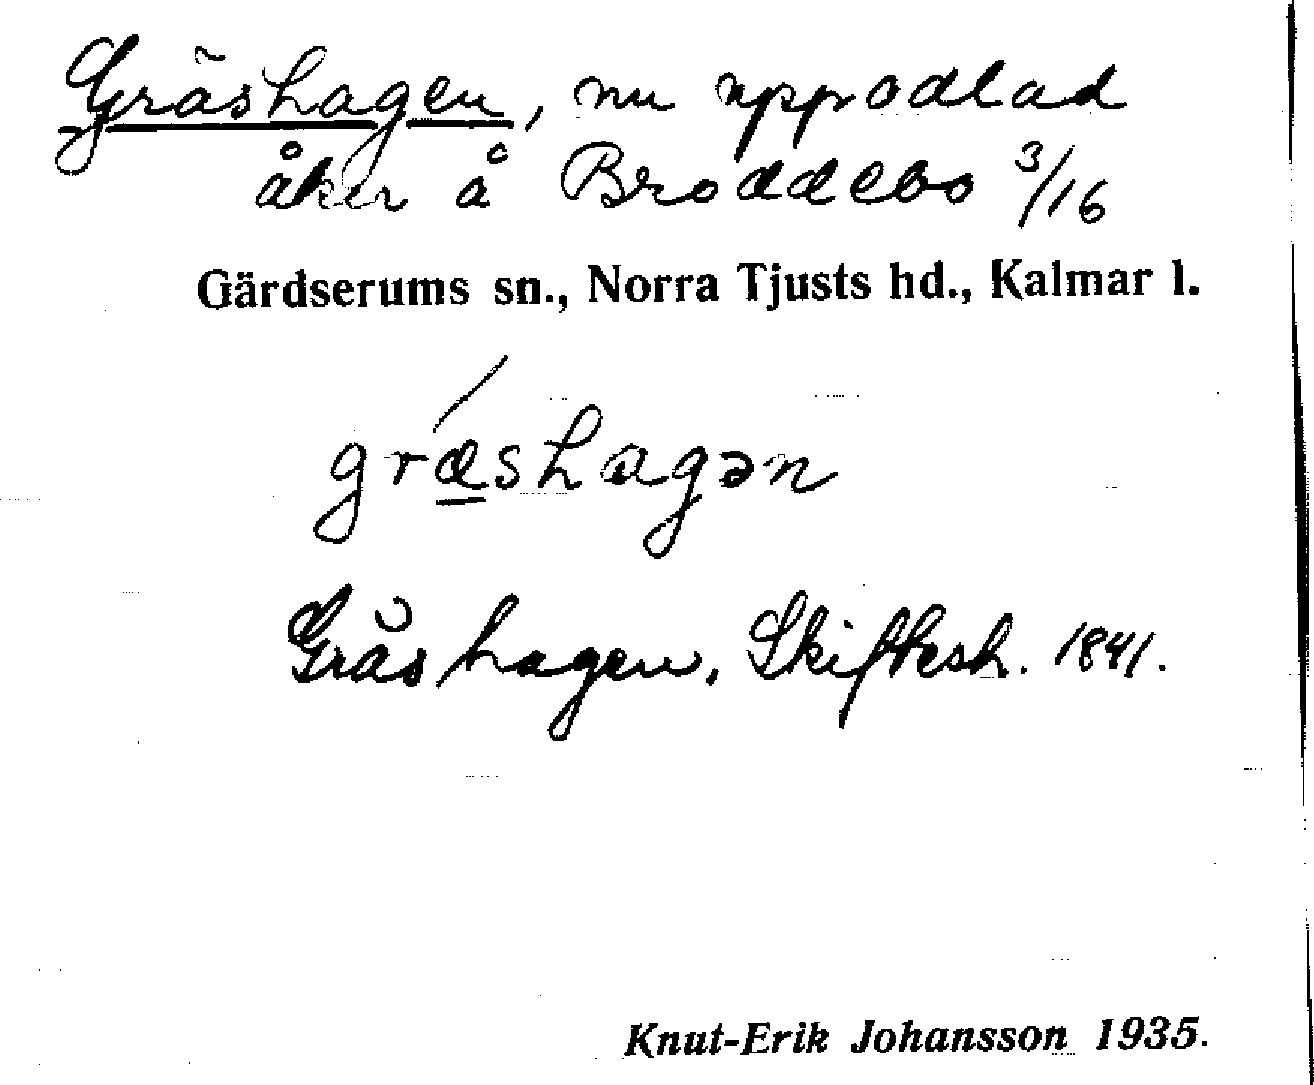 Gräshagen, nu uppodlad
åker å Broddebo 3/16
Gärdserums sn., Norra Tjusts hd., Kalmar l.
græshagən
Gräshagen, Skiftesh. 1841.
Knut-Erik Johansson 1935.